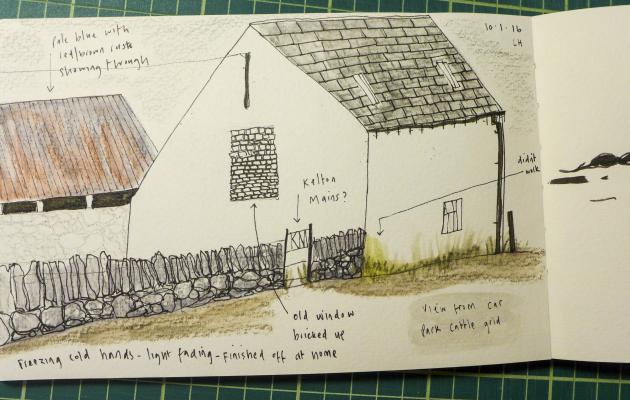 pale blue with
red/brown rust
showing through
10·1·16
LH
didn't
work
Kelton
Mains?
KM
old window
bricked up
View from car
park cattle grid
Freezing cold hands - light fading - finished off at home